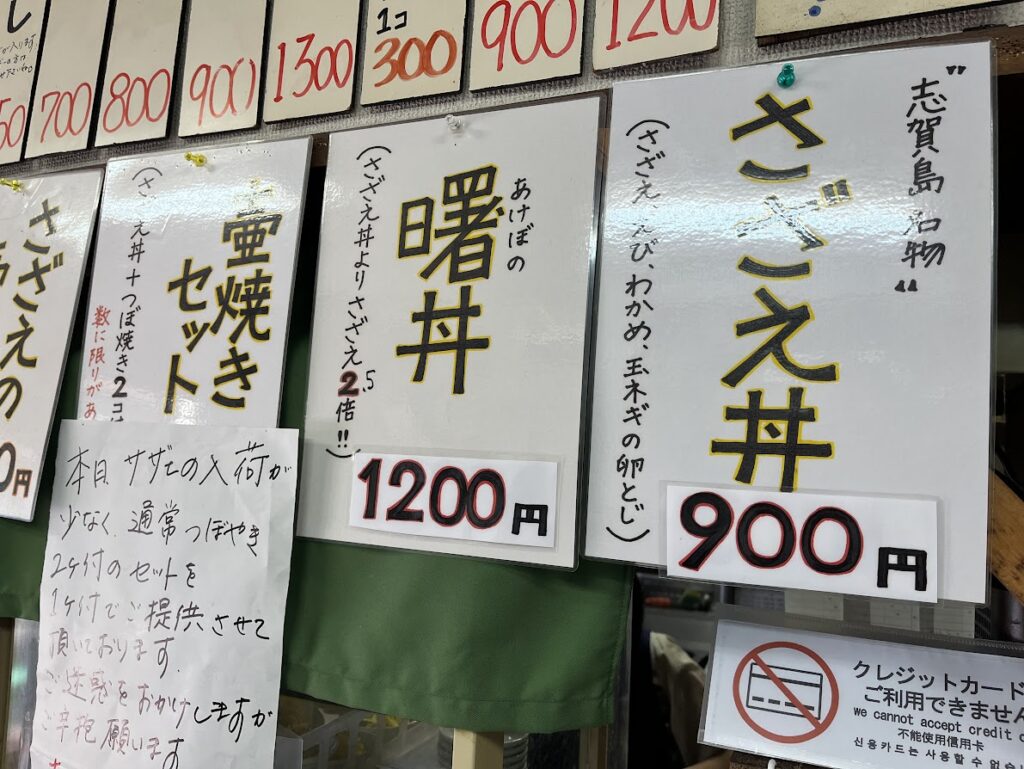 し
50
700
800
900
1300
1コ
300
900
1200
"志賀島名物"
さざえ丼
(さざえ、えび、わかめ、玉ネギの卵とじ)
900円
あけぼの
曙丼
(さざえ丼よりさざえ2.5倍!!)
1200円
壷焼き
セット
え丼+つぼ焼き2コ
数に限りがあ
さざえの
0円
本日 サザエの入荷が
少なく、通常つぼやき
2ケ付のセットを
1ケ付でご提供させて
頂いております.
ご迷惑をおかけしますが
ご辛抱願います
クレジットカード
ご利用できません
we cannot accept credit c
不能使用信用卡
신용카드는 사용할 수 없습